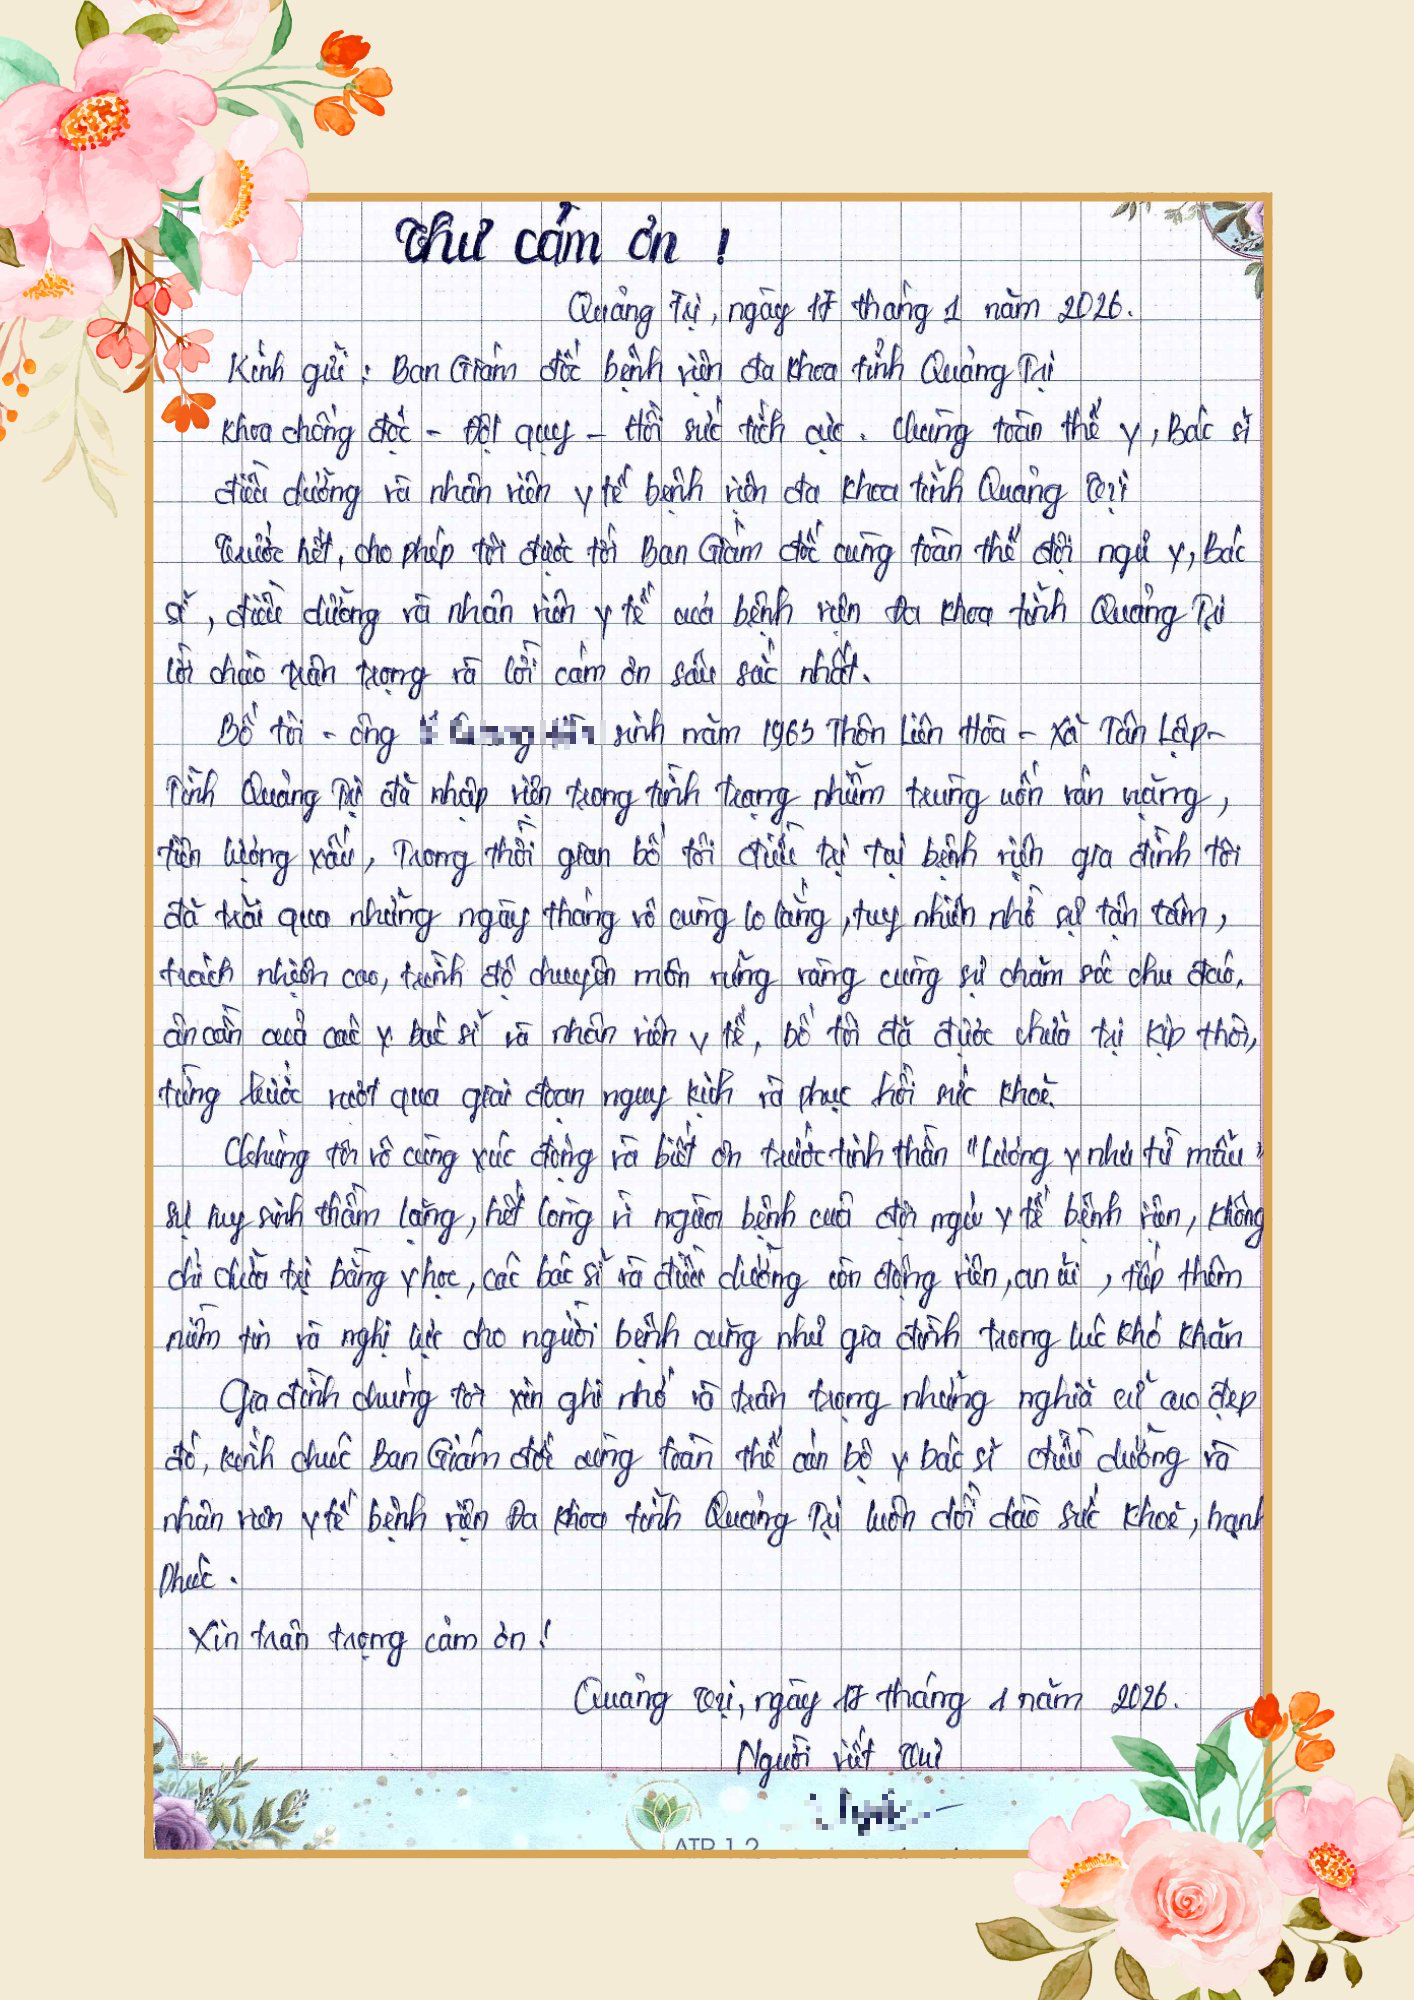 Thư cảm ơn !
Quảng Trị, ngày 17 tháng 1 năm 2026.
Kính gửi : Ban Giám đốc bệnh viện đa khoa tỉnh Quảng Trị
Khoa chống độc - Đột quỵ - Hồi sức tích cực. Cùng toàn thể y, Bác sĩ
điều dưỡng và nhân viên y tế bệnh viện đa khoa tỉnh Quảng Trị
Trước hết, cho phép tôi được tới Ban Giám đốc cùng toàn thể đội ngũ y, Bác
sĩ, điều dưỡng và nhân viên y tế của bệnh viện Đa khoa tỉnh Quảng Trị
lời chào trân trọng và lời cảm ơn sâu sắc nhất.
Bố tôi - ông sinh năm 1963 Thôn Liên Hoà - Xã Tân Lập-
Tỉnh Quảng Trị đã nhập viện trong tình trạng nhiễm trùng uốn ván nặng,
tiên lượng xấu, Trong thời gian bố tôi điều trị tại bệnh viện gia đình tôi
đã trải qua những ngày tháng vô cùng lo lắng, tuy nhiên nhờ sự tận tâm,
trách nhiệm cao, trình độ chuyên môn vững vàng cùng sự chăm sóc chu đáo,
ân cần của các y bác sĩ và nhân viên y tế, bố tôi đã được chữa trị kịp thời,
từng bước vượt qua giai đoạn nguy kịch và phục hồi sức khoẻ.
Chúng tôi vô cùng xúc động và biết ơn trước tinh thần "Lương y như từ mẫu"
sự hy sinh thầm lặng, hết lòng vì người bệnh của đội ngũ y tế bệnh viện, không
chỉ chữa trị bằng y học, các bác sĩ và điều dưỡng còn động viên, an ủi, tiếp thêm
niềm tin và nghị lực cho người bệnh cũng như gia đình trong lúc khó khăn
Gia đình chúng tôi xin ghi nhớ và trân trọng những nghĩa cử cao đẹp
đó, kính chúc Ban Giám đốc cùng toàn thể cán bộ y bác sĩ điều dưỡng và
nhân viên y tế bệnh viện Đa khoa tỉnh Quảng Trị luôn dồi dào sức khoẻ, hạnh
phúc.
Xin trân trọng cảm ơn !
Quảng Trị, ngày 17 tháng 1 năm 2026.
Người viết thư